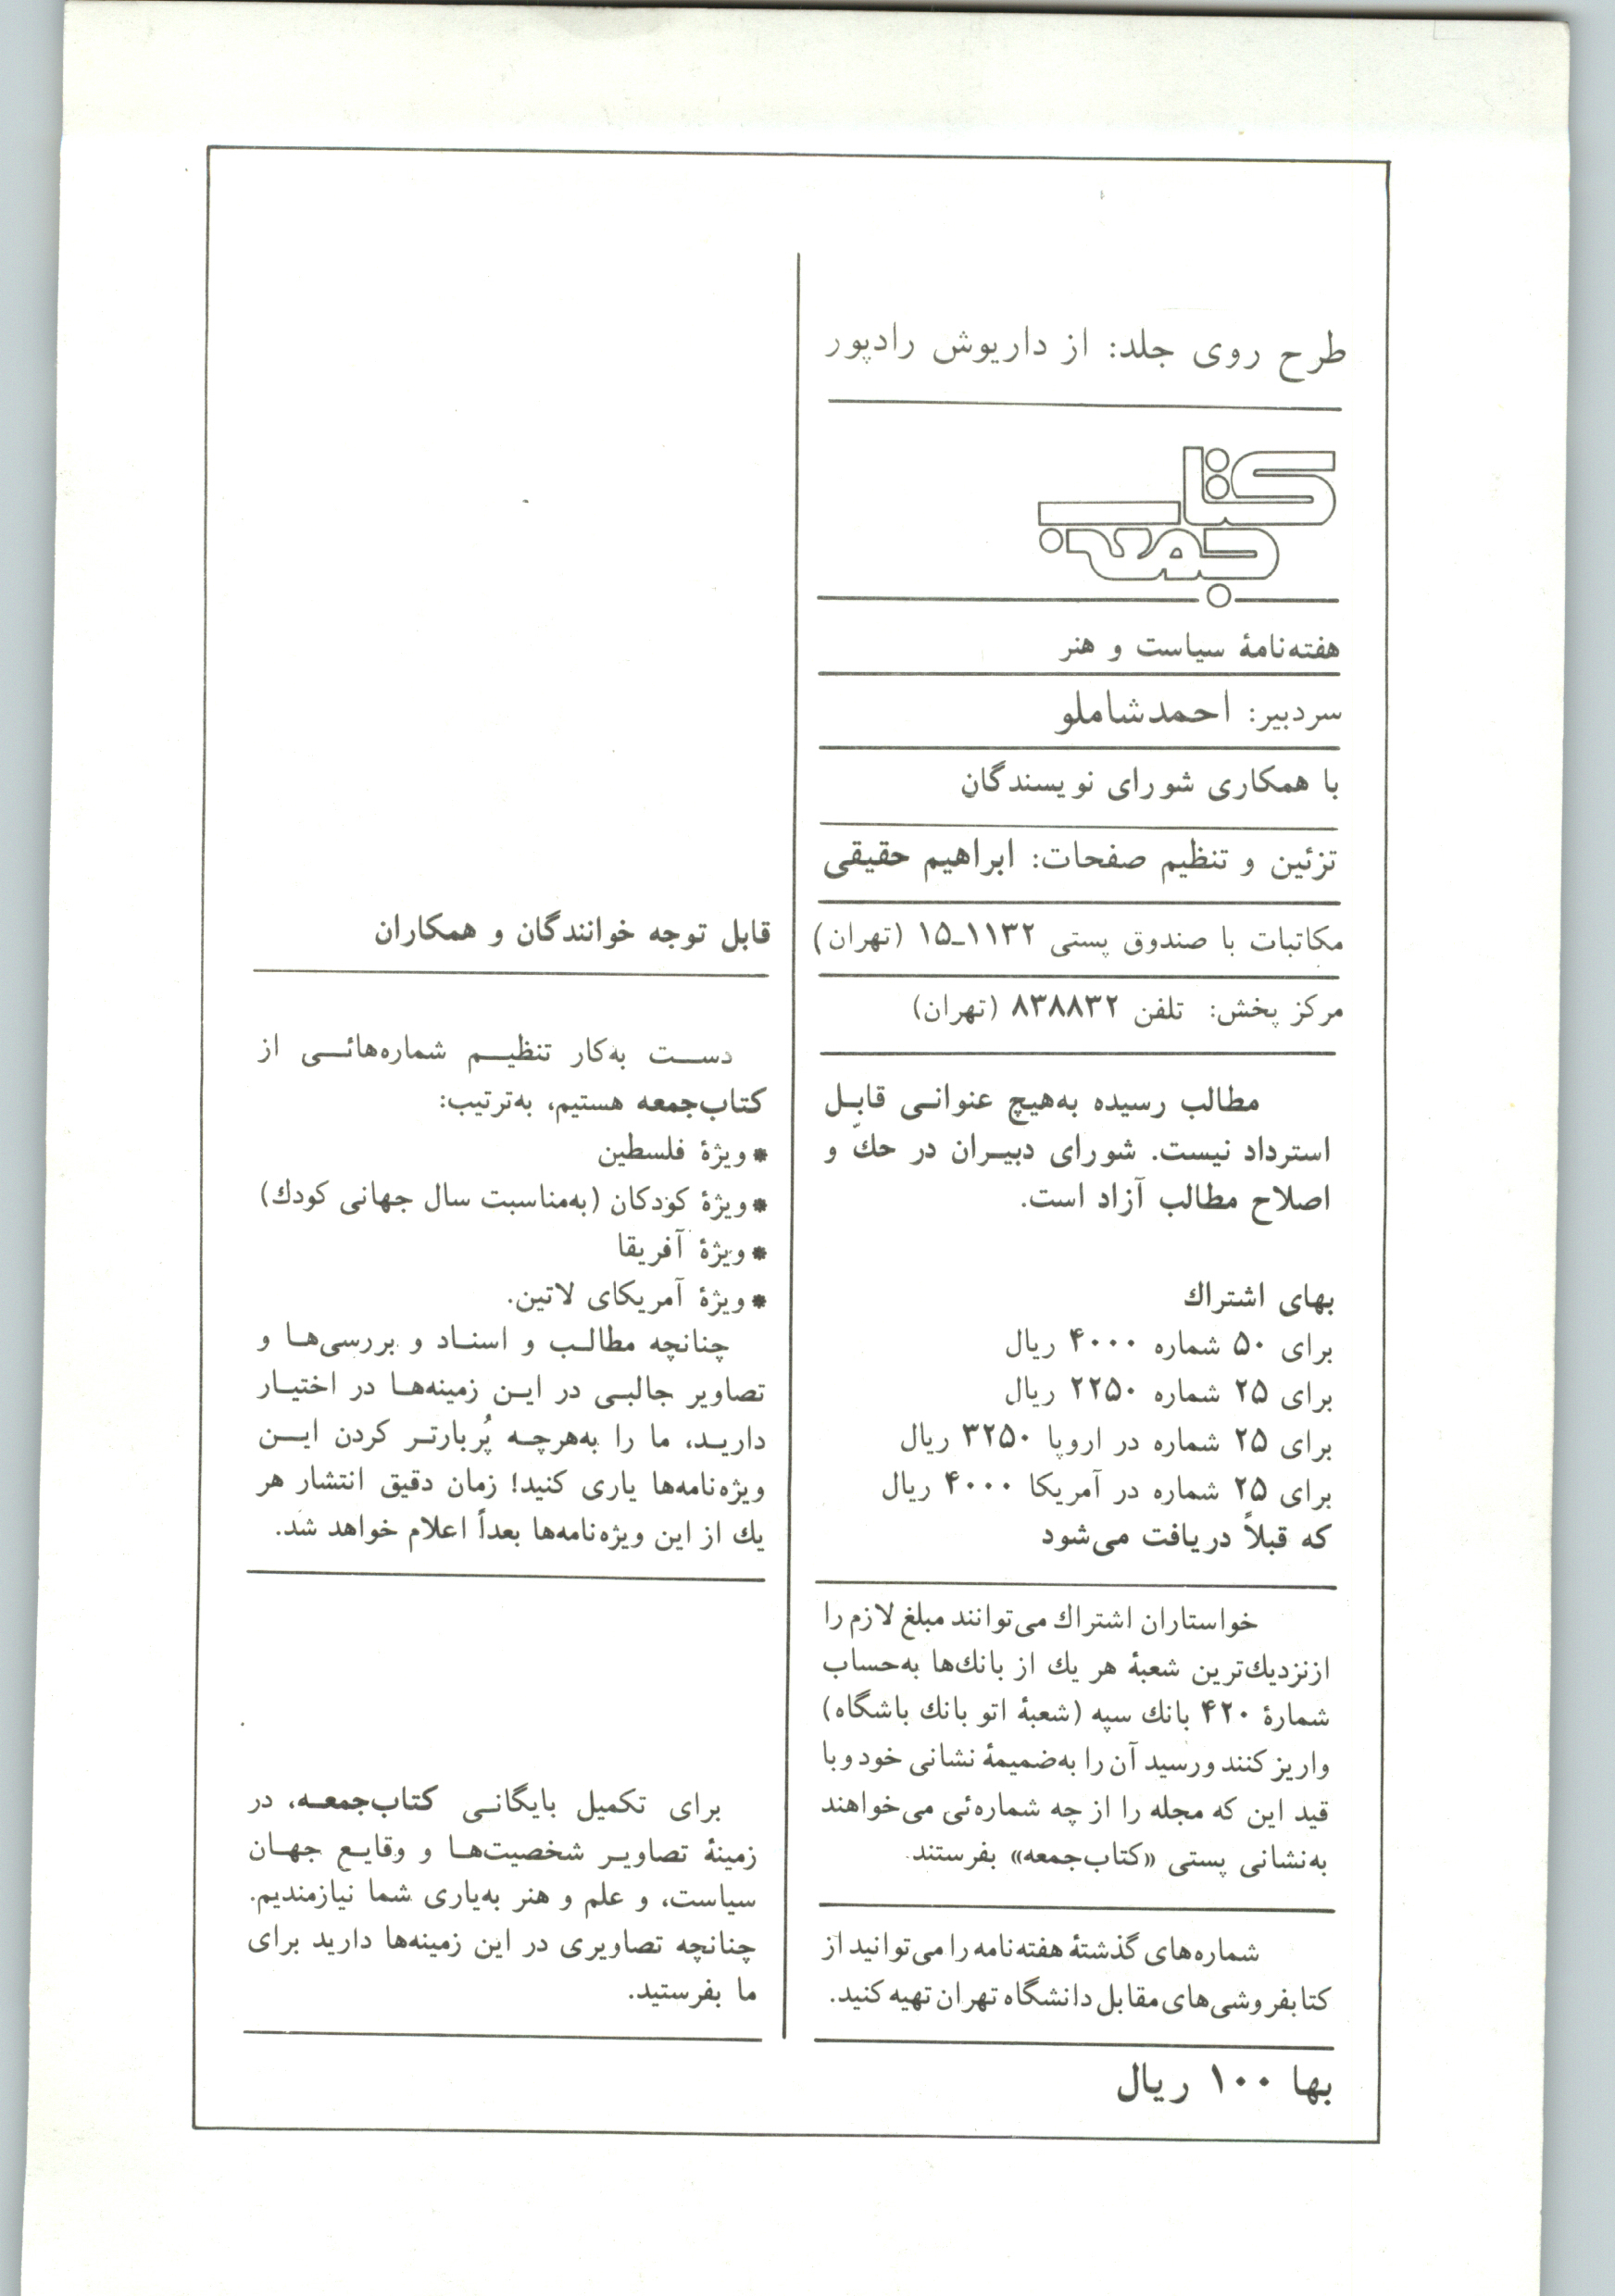 طرح روی جلد: از داریوش رادپور
کتاب
جمعه
هفته‌نامهٔ سیاست و هنر
سردبیر: احمدشاملو
با همکاری شورای نویسندگان
تزئین و تنظیم صفحات: ابراهیم حقیقی
مکاتبات با صندوق پستی ۱۱۳۲ـ۱۵ (تهران)
مرکز پخش: تلفن ۸۳۸۸۳۲ (تهران)
مطالب رسیده به‌هیچ عنوانی قابل
استرداد نیست. شورای دبیران در حكّ و
اصلاح مطالب آزاد است.
بهای اشتراك
برای ۵۰ شماره ۴۰۰۰ ریال
برای ۲۵ شماره ۲۲۵۰ ریال
برای ۲۵ شماره در اروپا ۳۲۵۰ ریال
برای ۲۵ شماره در آمریکا ۴۰۰۰ ریال
که قبلاً دریافت می‌شود
خواستاران اشتراك می‌توانند مبلغ لازم را
ازنزدیك‌ترین شعبهٔ هر یك از بانك‌ها به‌حساب
شمارهٔ ۴۲۰ بانك سپه (شعبهٔ اتو بانك باشگاه)
واریز کنند ورسید آن را به‌ضمیمهٔ نشانی خود وبا
قید این که مجله را از چه شماره‌ئی می‌خواهند
به‌نشانی پستی «کتاب‌جمعه» بفرستند.
شماره‌های گذشتهٔ هفته‌نامه را می‌توانید از
کتابفروشی‌های مقابل دانشگاه تهران تهیه کنید.
بها ۱۰۰ ریال
قابل توجه خوانندگان و همکاران
دست به‌کار تنظیم شماره‌هائی از
کتاب‌جمعه هستیم، به‌ترتیب:
* ویژهٔ فلسطین
* ویژهٔ کودکان (به‌مناسبت سال جهانی کودك)
* ویژهٔ آفریقا
* ویژهٔ آمریکای لاتین.
چنانچه مطالب و اسناد و بررسی‌ها و
تصاویر جالبی در این زمینه‌ها در اختیار
دارید، ما را به‌هرچه پُربارتر کردن این
ویژه‌نامه‌ها یاری کنید! زمان دقیق انتشار هر
یك از این ویژه‌نامه‌ها بعداً اعلام خواهد شد.
برای تکمیل بایگانی کتاب‌جمعه، در
زمینهٔ تصاویر شخصیت‌ها و وقایع جهان
سیاست، و علم و هنر به‌یاری شما نیازمندیم.
چنانچه تصاویری در این زمینه‌ها دارید برای
ما بفرستید.